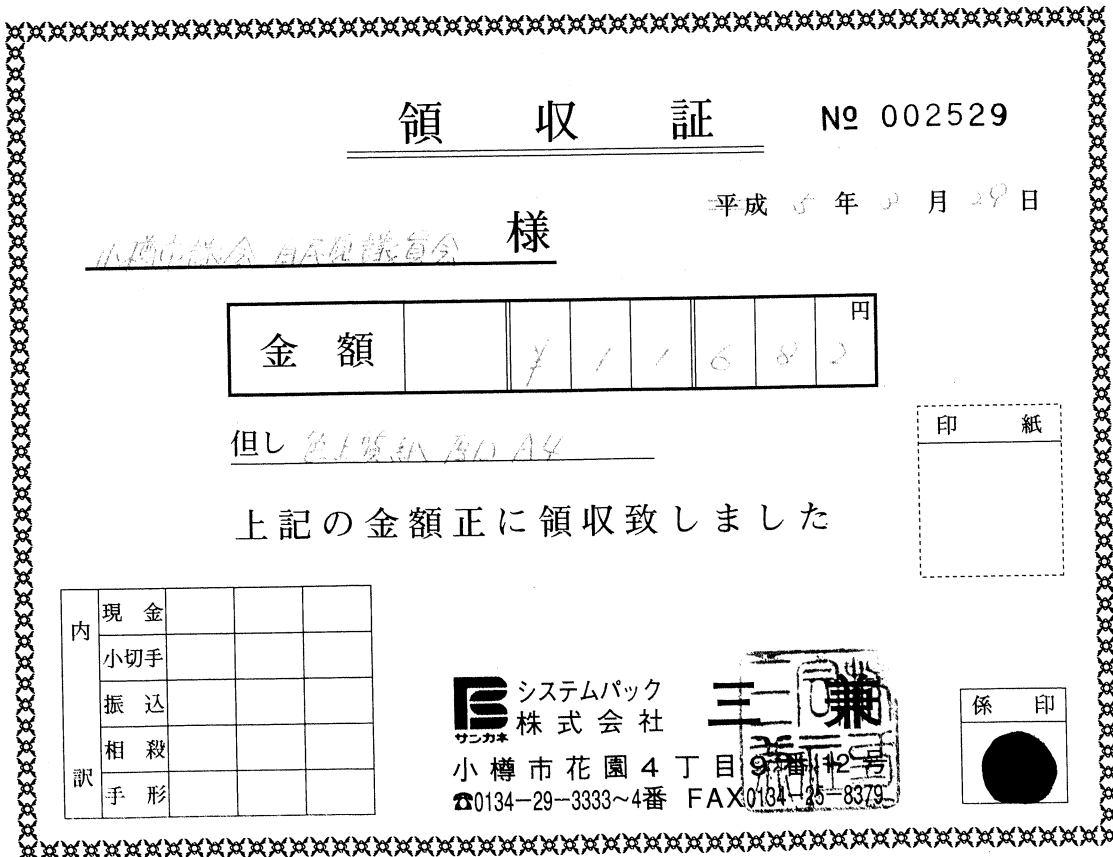 領収証 № 002529
平成 5 年 8 月 29 日
小樽市議会 自民党議員会 様
金額 ¥11682 円
但し 色上質紙 厚口 A4
印紙
上記の金額正に領収致しました
内訳
現金
小切手
振込
相殺
手形
サンカネ
システムパック
株式会社 三兼
小樽市花園4丁目9番12号
☎0134-29-3333~4番 FAX0134-25-8379
係印